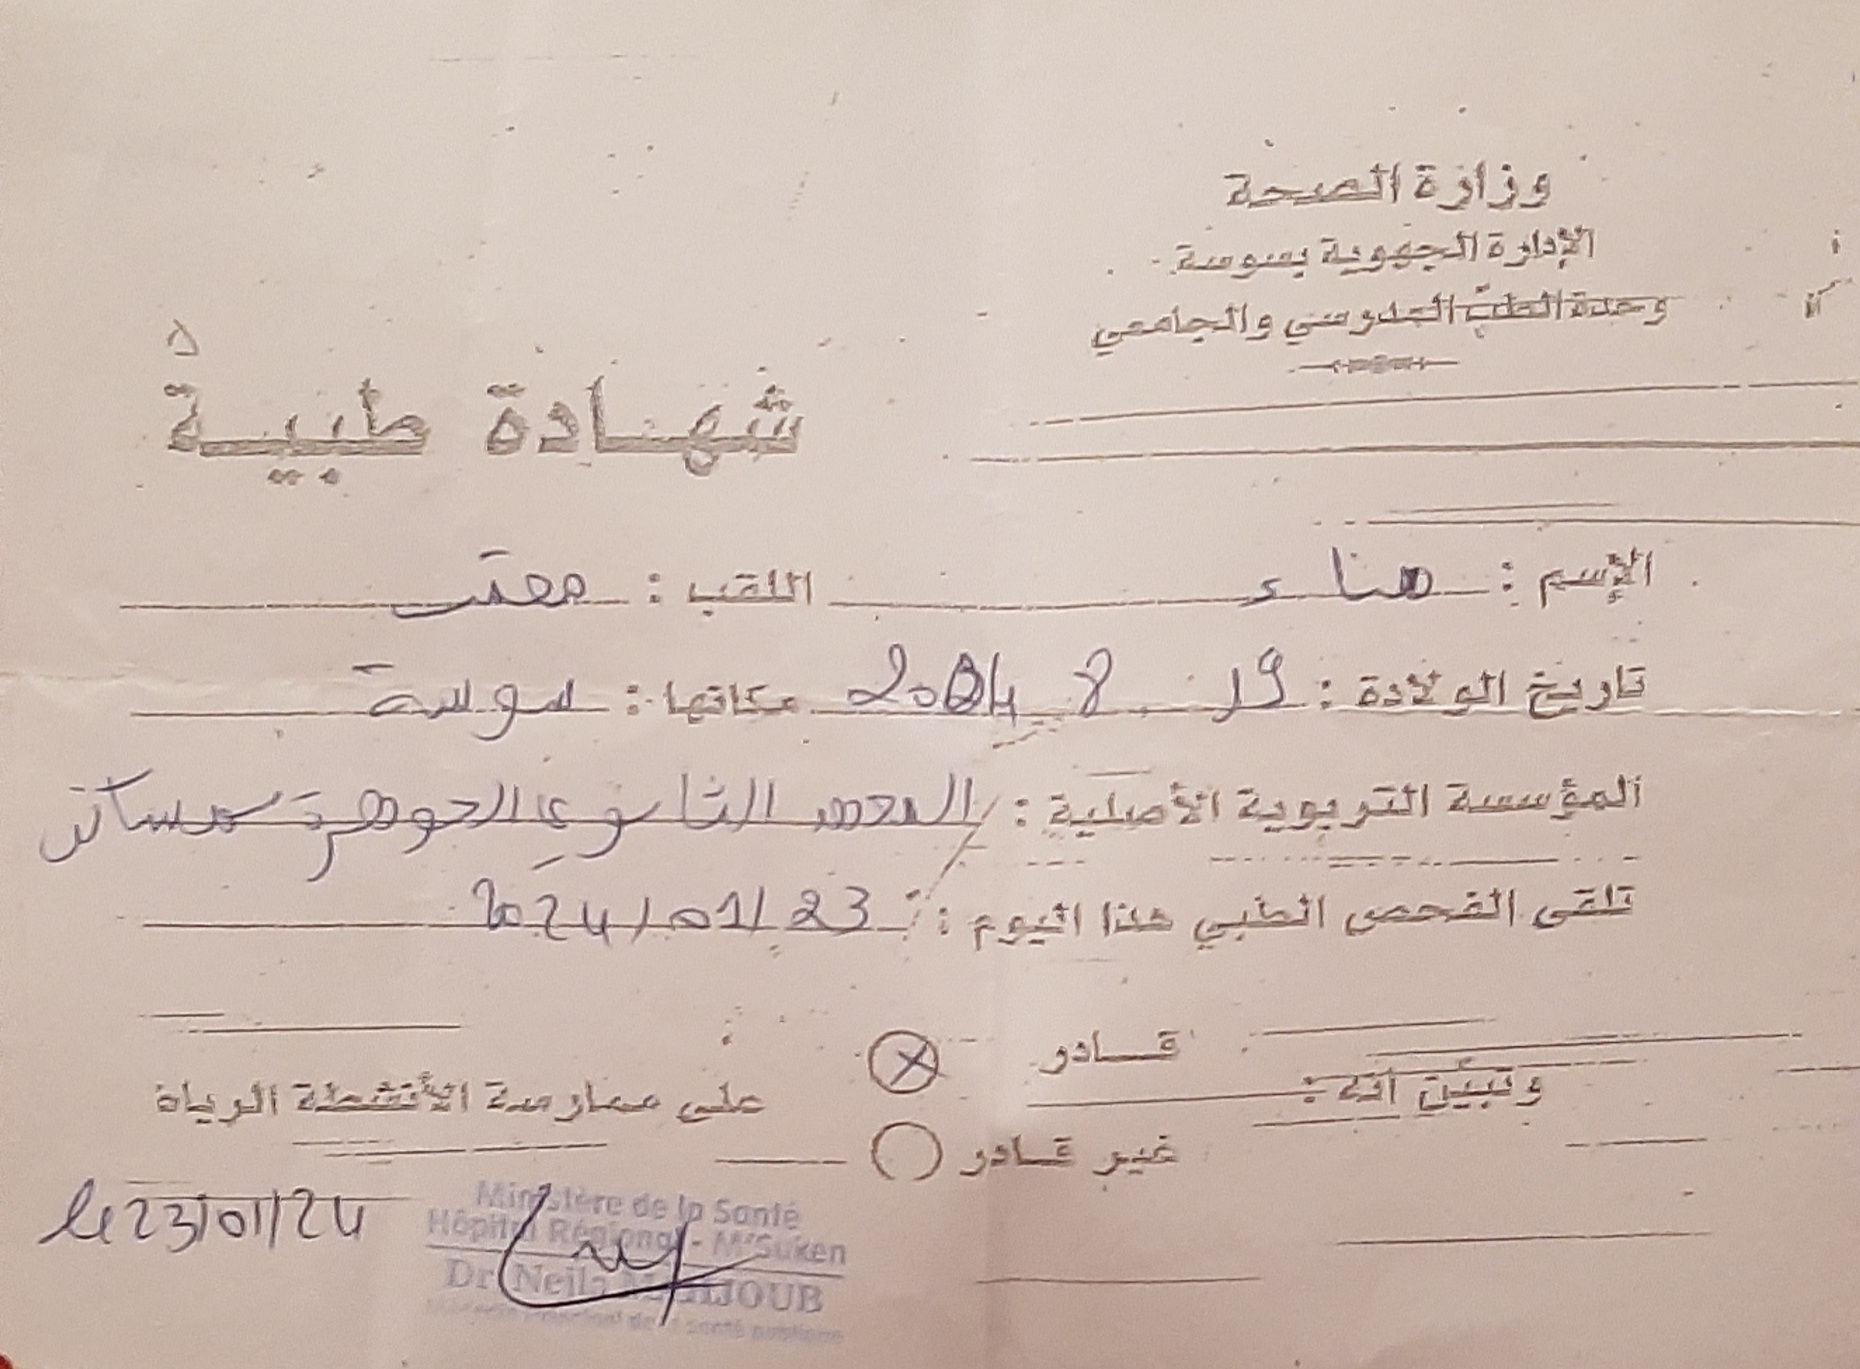 وزارة الصحة
الإدارة الجهوية بسوسة
وحدة الطب المدرسي والجامعي
شهادة طبية
الإسم : هناء اللقب : معتر
تاريخ الولادة : 19 8 2004 مكانها : سوسة
المؤسسة التربوية الأصلية : المعهد الثانوي الجوهرة مساكن
تلقى الفحص الطبي هذا اليوم : 23 /01/ 2024
وتبيّن أنه :
قادر
غير قادر
على ممارسة الأنشطة الرياة
le 23/01/24
Ministère de la Santé
Hôpital Régional - M'Saken
Dr Nejla MAHJOUB
de la santé publique